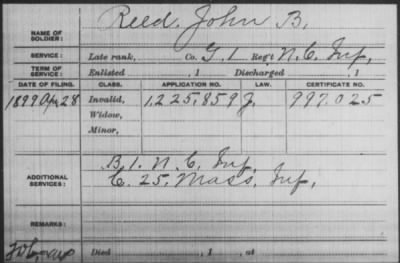 Reed, John B.
NAME OF SOLDIER:
SERVICE: Late rank, Co. G. 1 Reg't N.C. Inf,
TERM OF SERVICE: Enlisted , 1 Discharged , 1
DATE OF FILING. CLASS. APPLICATION NO. LAW. CERTIFICATE NO.
1899 Apr 28 Invalid, 1,225.859 J. 997.025
Widow,
Minor,
ADDITIONAL SERVICES: B. 1. N. C. Inf,
C. 25. Mass. Inf,
REMARKS:
Died , 1 , at